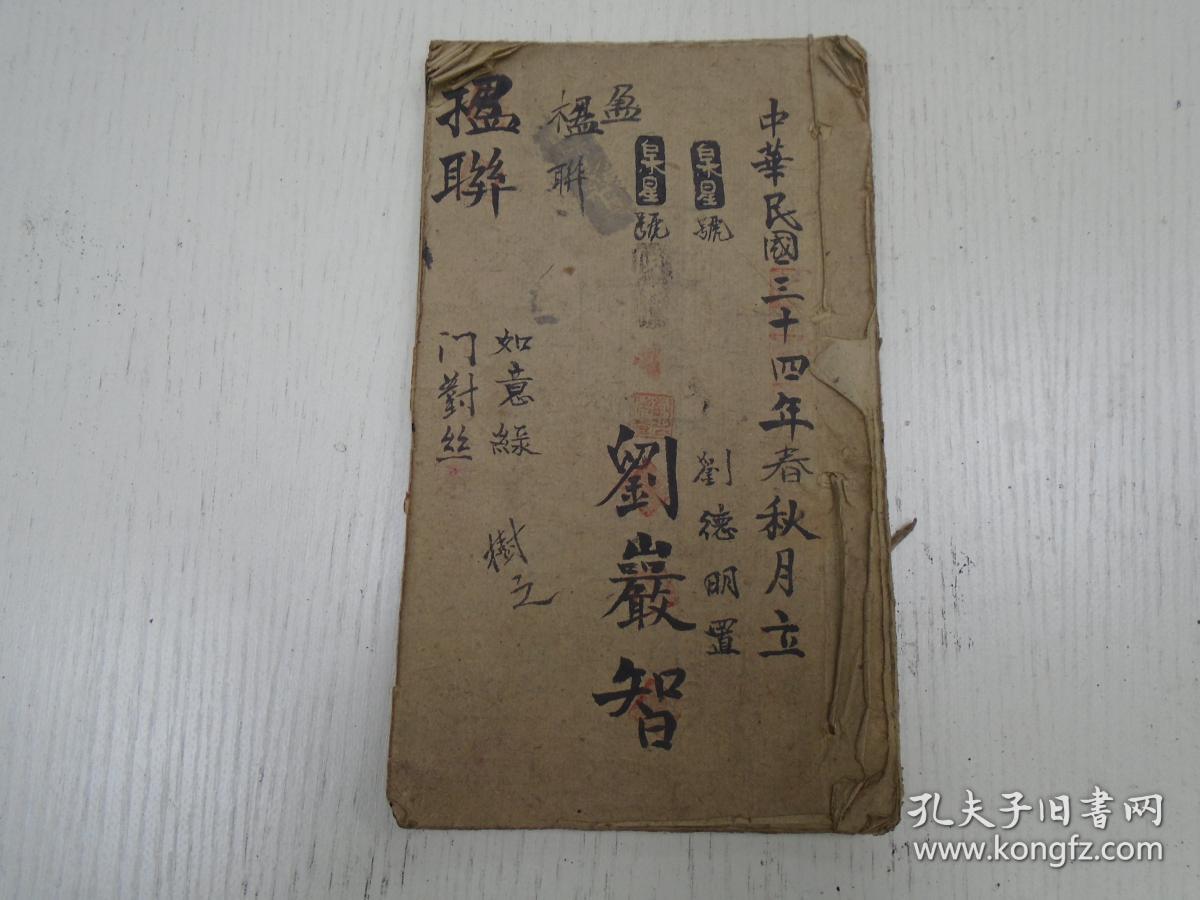 中華民國三十四年春秋月立
劉德明置
泉星號
泉星號
劉巖智
盈
楹聯
如意綠
樹之
楹聯
门對丝
孔夫子旧书网
www.kongfz.com